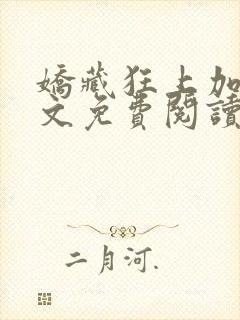 嬌藏狂上加
文免費閱讀
二月河.